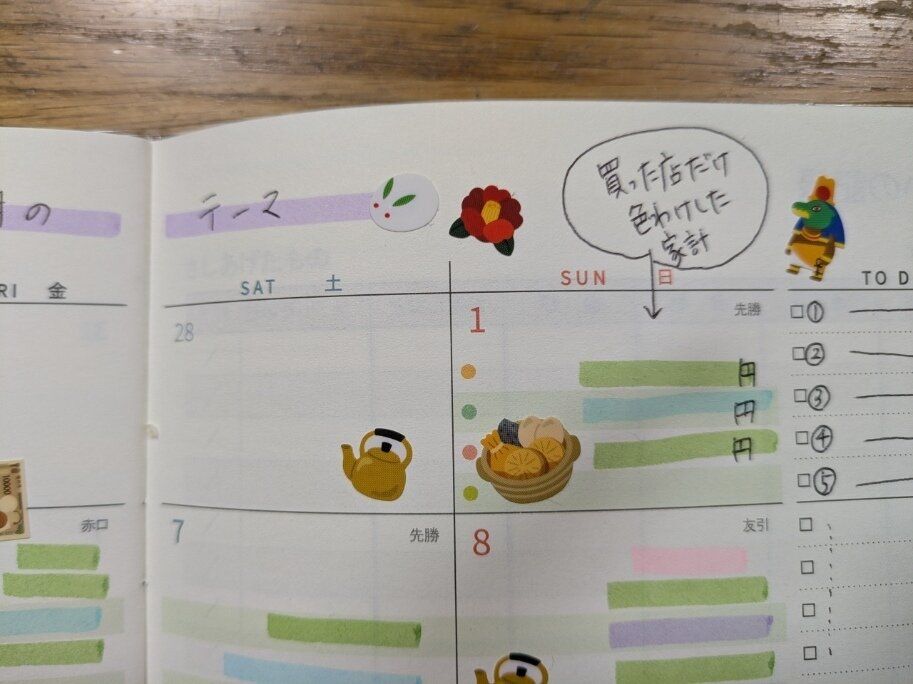 の
テース
買った店だけ
色わけした
家計
RI 金
SAT 土
SUN 日
TO D
28
1 先勝
円
円
円
□①
□②
□③
□④
□⑤
10000
赤口
7 先勝
8 友引